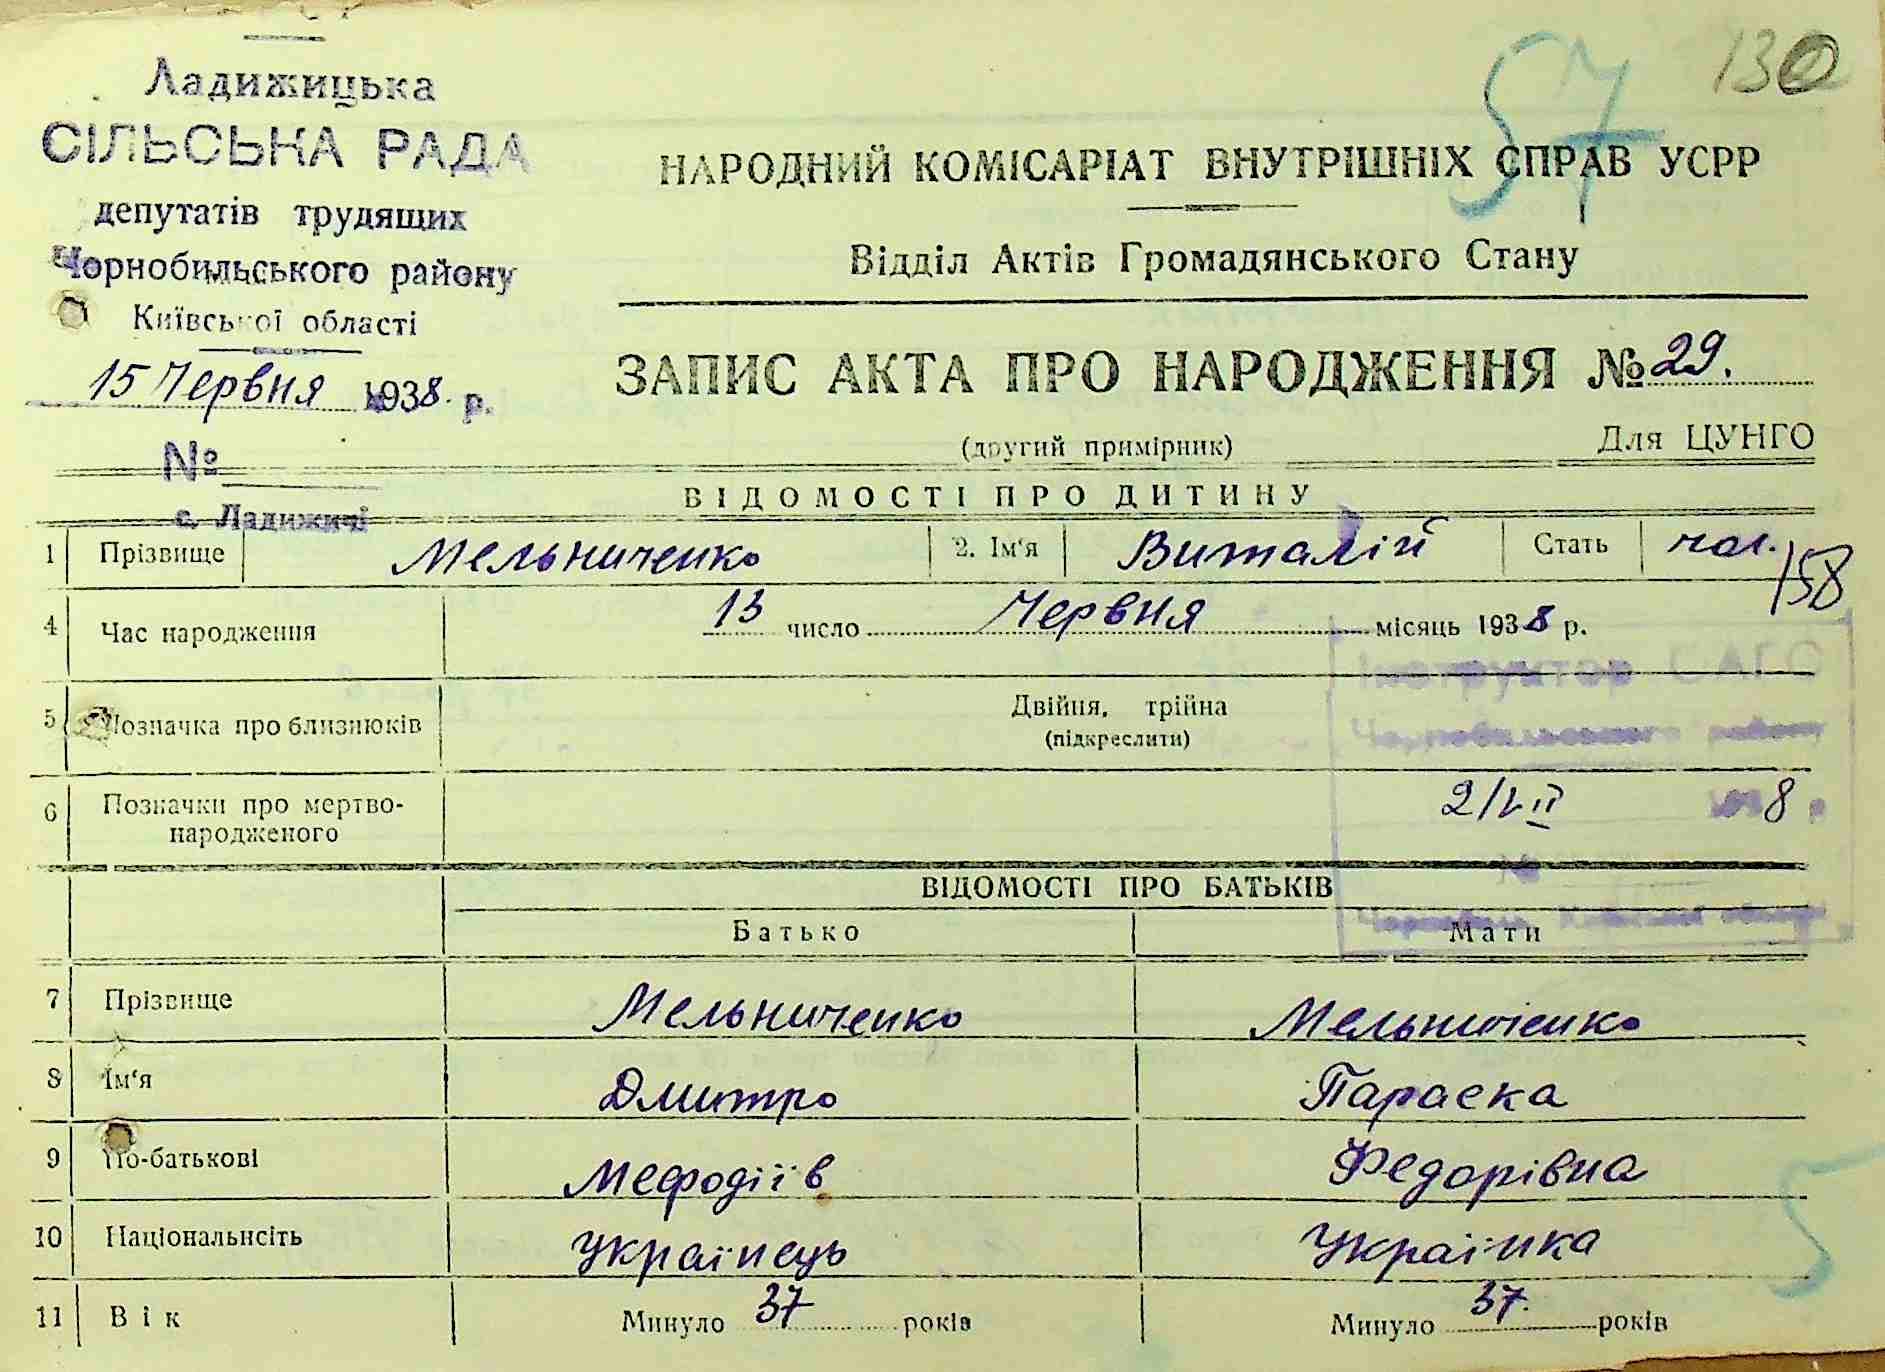 130
57
Ладижицька
СІЛЬСЬКА РАДА
депутатів трудящих
Чорнобильського району
Київської області
15 Червня 1938. р.
№
с. Ладижичі
НАРОДНИЙ КОМІСАРІАТ ВНУТРІШНІХ СПРАВ УСРР
Відділ Актів Громадянського Стану
ЗАПИС АКТА ПРО НАРОДЖЕННЯ № 29.
(другий примірник)
Для ЦУНГО
ВІДОМОСТІ ПРО ДИТИНУ
1 Прізвище Мельниченко 2. Ім‘я Виталій Стать чол.
158
4 Час народження 13 число Червня місяць 1938 р.
Інструктор ЗАГС
Чорнобильського району
5 Позначка про близнюків Двійня, трійна
(підкреслити)
6 Позначки про мертво-
народженого
2/VII 8
№
ВІДОМОСТІ ПРО БАТЬКІВ
Чорнобиль, Київської області
Батько Мати
7 Прізвище Мельниченко Мельниченко
8 Ім‘я Дмитро Параска
9 По-батькові Мефодіїв Федорівна
10 Національнсіть Українець Українка
5
11 Вік Минуло 37 років Минуло 37. років